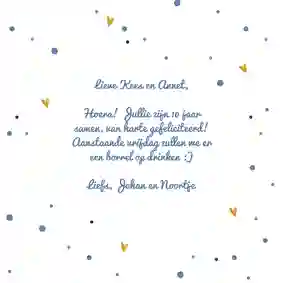 Lieve Kees en Annet,
Hoera! Jullie zijn 10 jaar
samen, van harte gefeliciteerd!
Aanstaande vrijdag zullen we er
een borrel op drinken :)
Liefs, Johan en Noortje